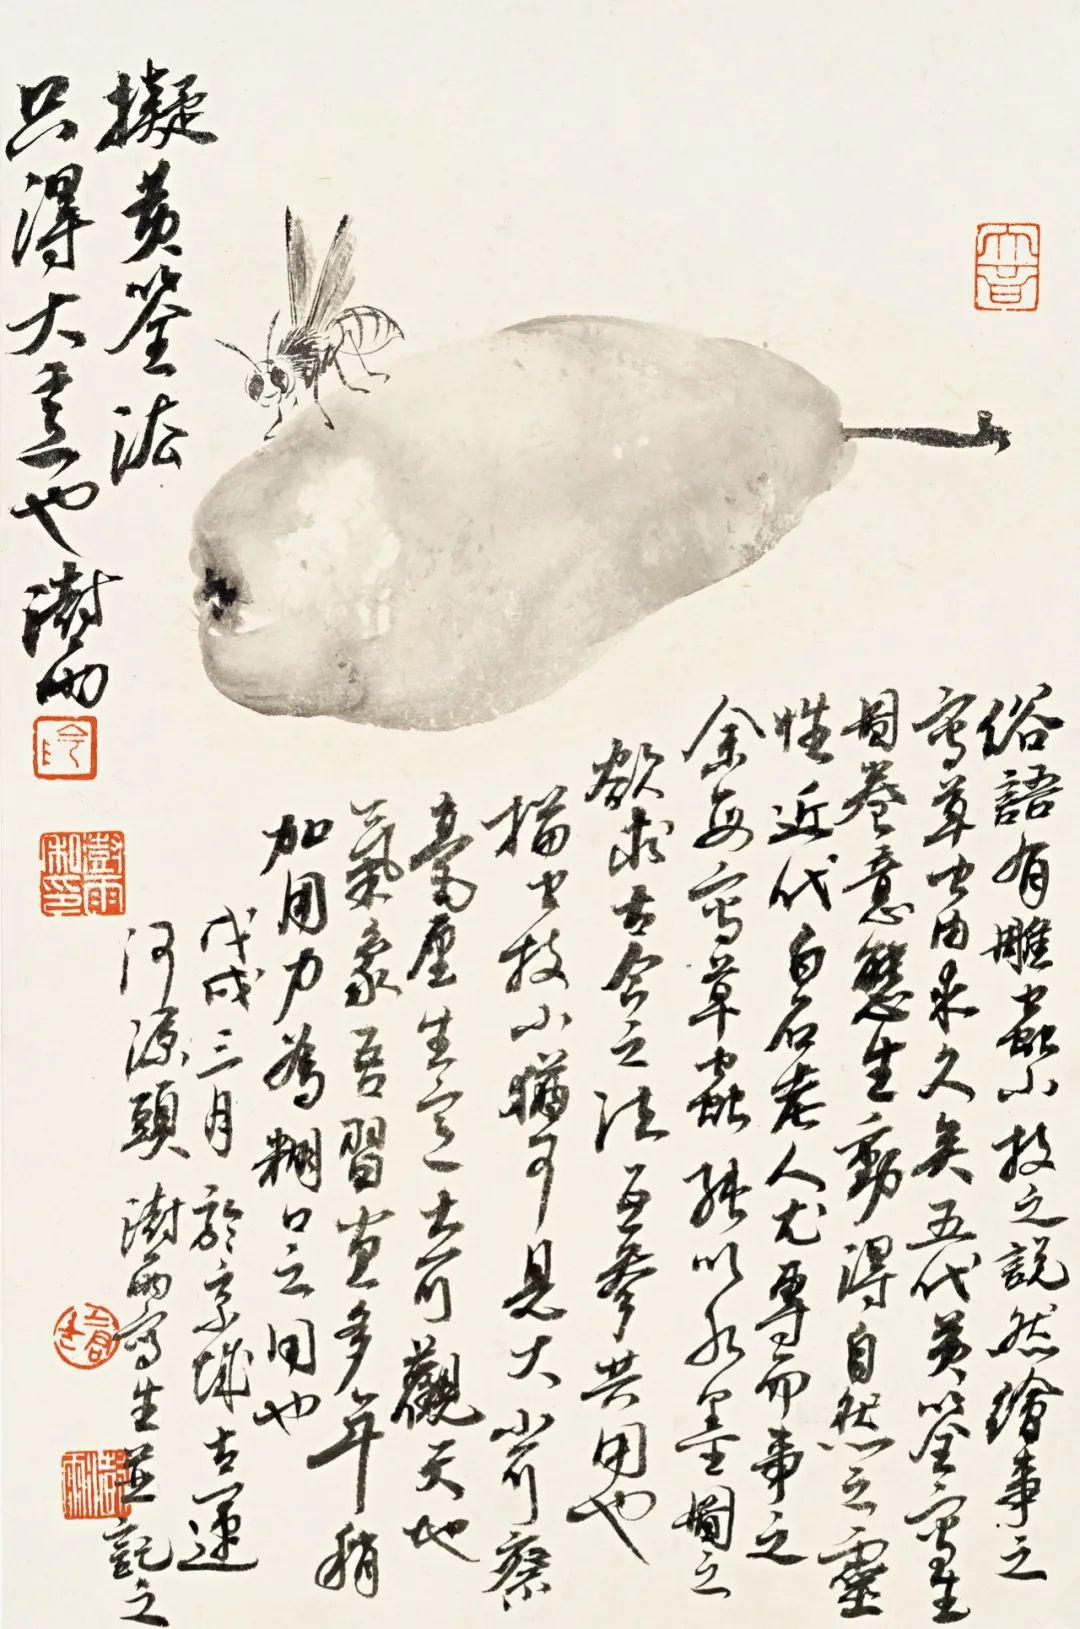 擬黄筌法
只得大意也澍雨
俗語有雕蟲小技之説然繪事之
寫草虫由來久矣五代黄筌寫生
圖卷意態生動得自然之靈
性近代白石老人尤專而事之
余每寫草蟲純以水墨圖之
欲求古今之法互參共用也
描虫技小猶可見大小可察
毫厘生之大可觀天地
氣象吾習畫多年稍
加用力為糊口之用也
戊戌三月於京城古運
河源頭澍雨寫生並記之
澍雨